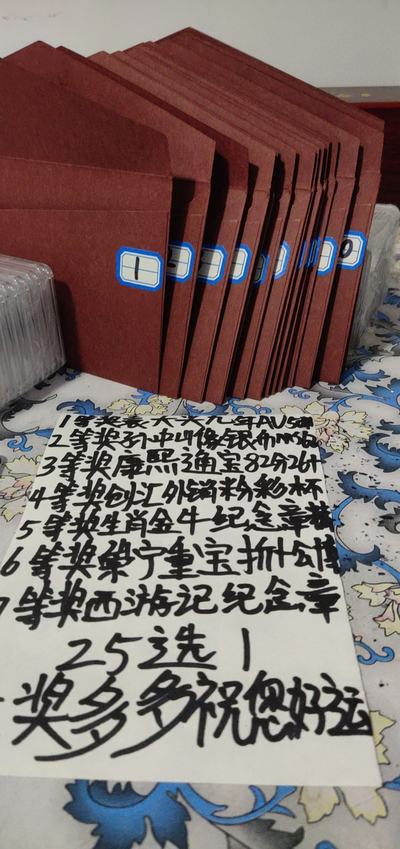 1
0
1等奖袁大头九年AU5
2等奖孙中山像银币MS6
3等奖康熙通宝82分26
4等奖创汇外销粉彩杯
5等奖生肖金牛纪念章
6等奖崇宁重宝折十公博
7等奖西游记纪念章
25选1
奖多多祝您好运